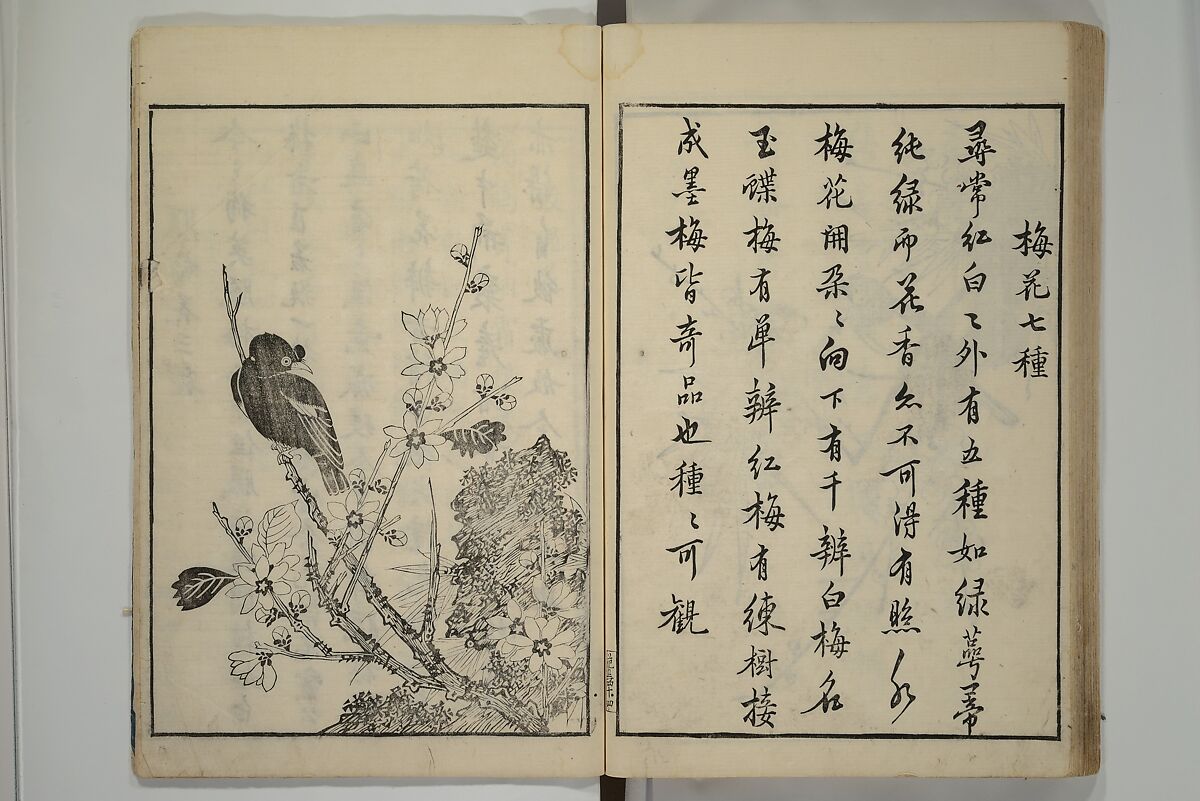 梅花七種
尋常紅白〻外有五種如緑萼蒂
純緑而花香亦不可得有照水
梅花開朶〻向下有千瓣白梅名
玉蝶梅有單瓣紅梅有練樹接
成墨梅皆奇品也種〻可觀